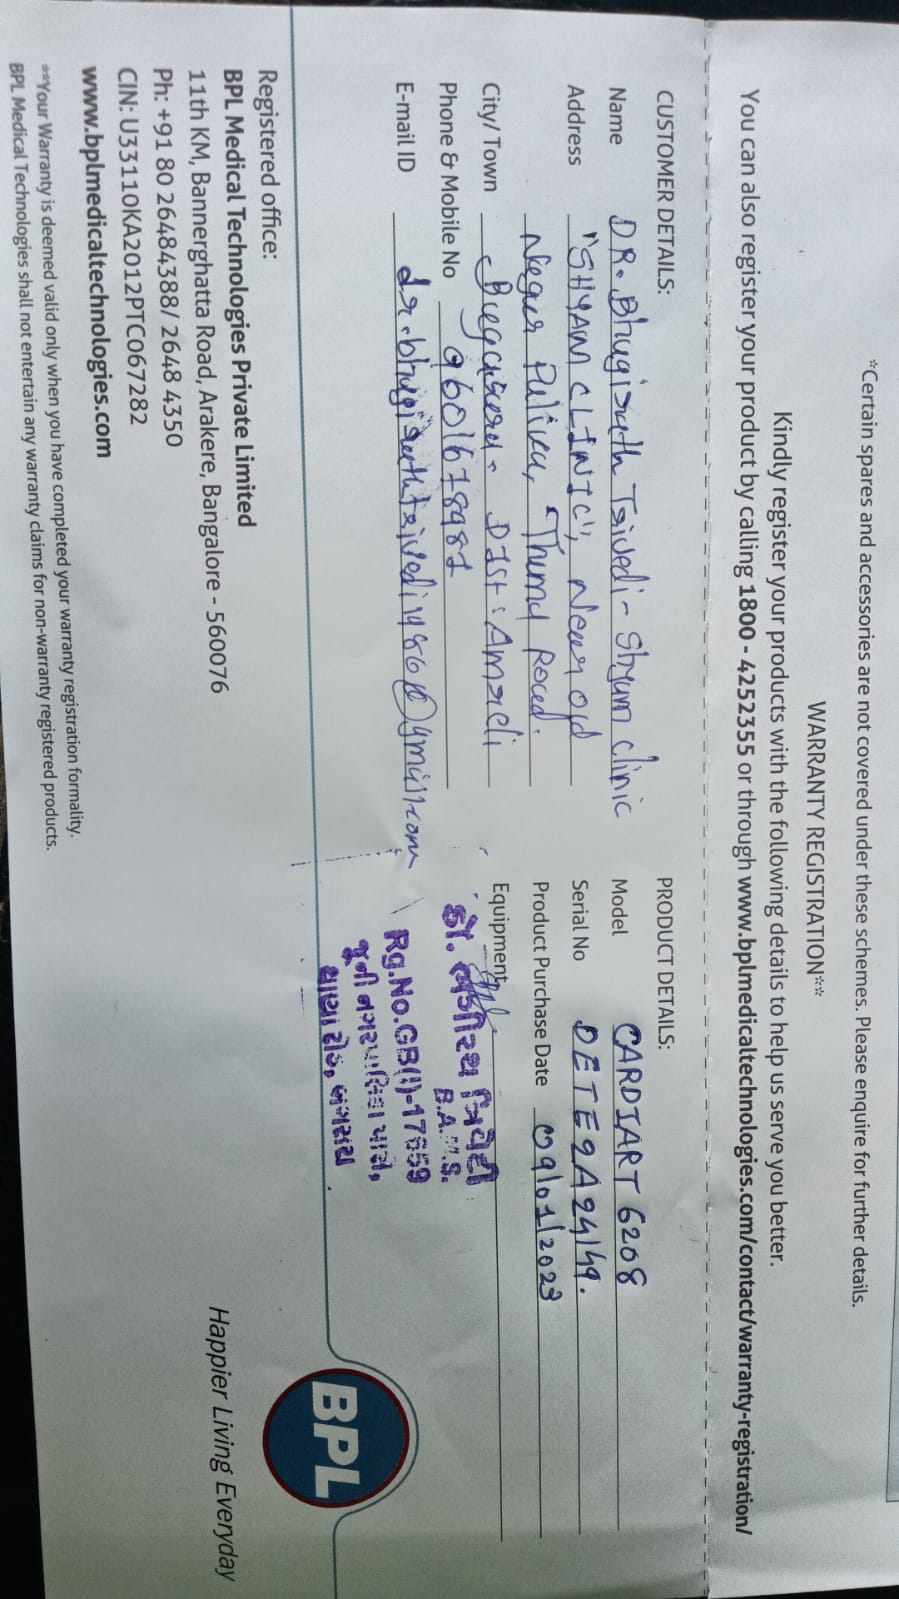 *Certain spares and accessories are not covered under these schemes. Please enquire for further details.
WARRANTY REGISTRATION**
Kindly register your products with the following details to help us serve you better.
You can also register your product by calling 1800 - 4252355 or through www.bplmedicaltechnologies.com/contact/warranty-registration/
CUSTOMER DETAILS:
Name DR. Bhagirath Trivedi - Shyam clinic
Address "SHYAM CLINIC", Near old
Nagar Palika, Thana Road.
City/ Town Bagasara. DIST: Amreli
Phone & Mobile No 9601678981
E-mail ID dr.bhagirathtrivedi1986@gmail.com
PRODUCT DETAILS:
Model CARDIART 6208
Serial No DETE2A24149.
Product Purchase Date 09/01/2023
Equipment
ડો. ભગીરથ ત્રિવેદી
B.A.M.S.
Rg.No.GB(I)-17659
જુની નગરપાલિકા પાસે,
થાણા રોડ, બગસરા
Registered office:
BPL Medical Technologies Private Limited
11th KM, Bannerghatta Road, Arakere, Bangalore - 560076
Ph: +91 80 26484388/ 2648 4350
CIN: U33110KA2012PTC067282
www.bplmedicaltechnologies.com
BPL
Happier Living Everyday
**Your Warranty is deemed valid only when you have completed your warranty registration formality.
BPL Medical Technologies shall not entertain any warranty claims for non-warranty registered products.